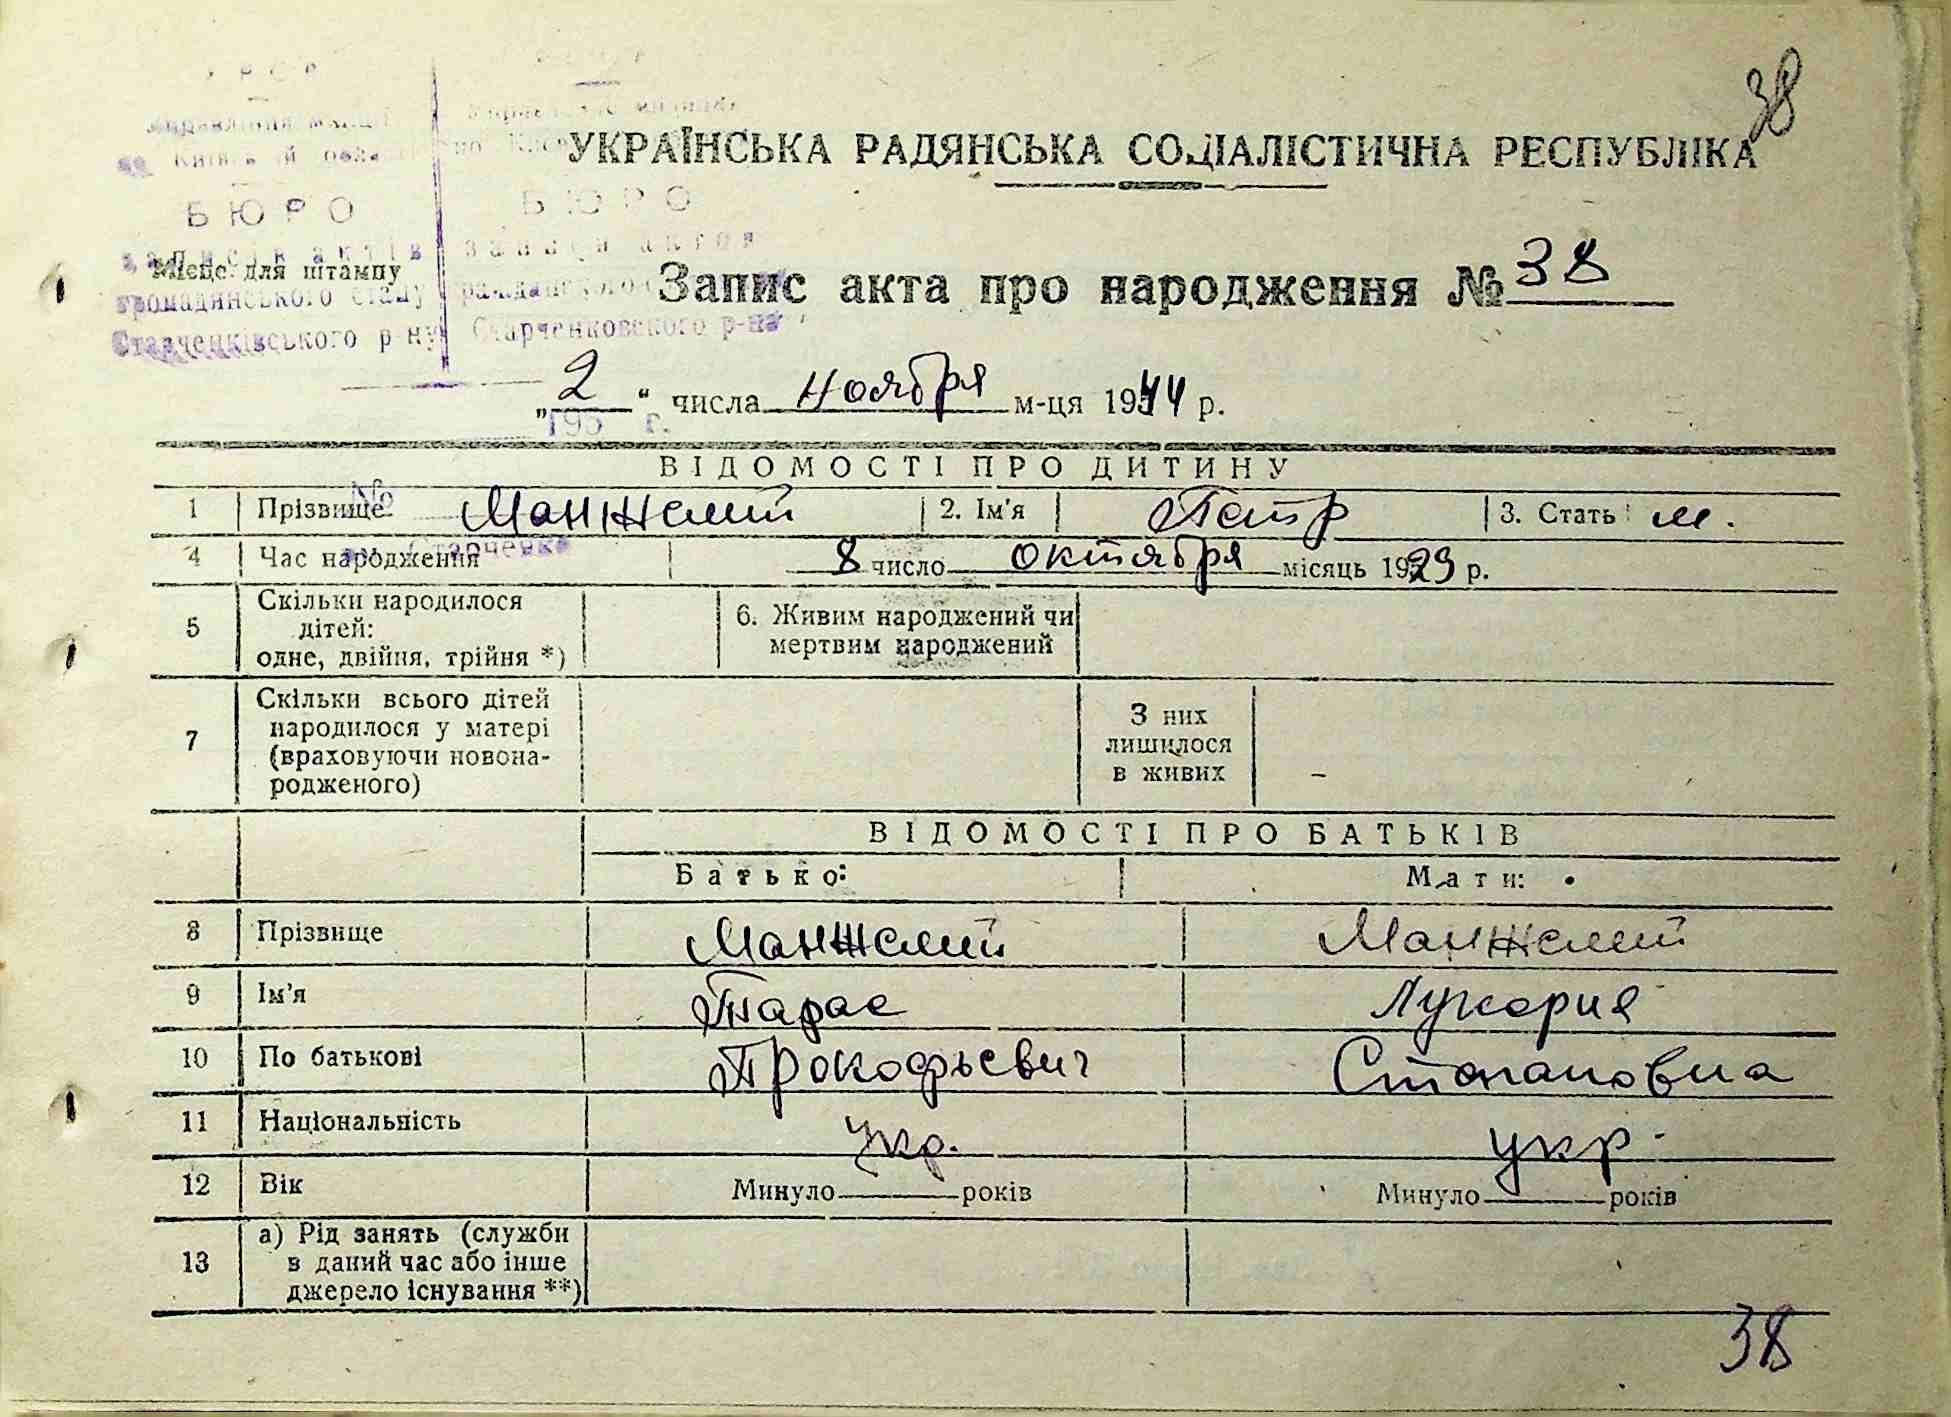 38
УКРАЇНСЬКА РАДЯНСЬКА СОЦІАЛІСТИЧНА РЕСПУБЛІКА
БЮРО БЮРО
записів актів записи актов
Місце для штампу
громадянського стану гражданского
Запис акта про народження № 38
Старченківського р-ну Старченковского р-на
„2“ числа ноября м-ця 1944 р.
195 г.
ВІДОМОСТІ ПРО ДИТИНУ
№
1 Прізвище Манжелий 2. Ім'я Петр 3. Стать м.
4 Час народження 8 число октября місяць 1923 р.
5 Скільки народилося дітей: одне, двійня, трійня *) 6. Живим народжений чи мертвим народжений
7 Скільки всього дітей народилося у матері (враховуючи новонародженого) З них лишилося в живих –
ВІДОМОСТІ ПРО БАТЬКІВ
Батько: Мати:
8 Прізвище Манжелий Манжелий
9 Ім'я Тарас Лукерия
10 По батькові Прокофьевич Степановна
11 Національність укр. укр.
12 Вік Минуло років Минуло років
13 а) Рід занять (служби в даний час або інше джерело існування **)
38